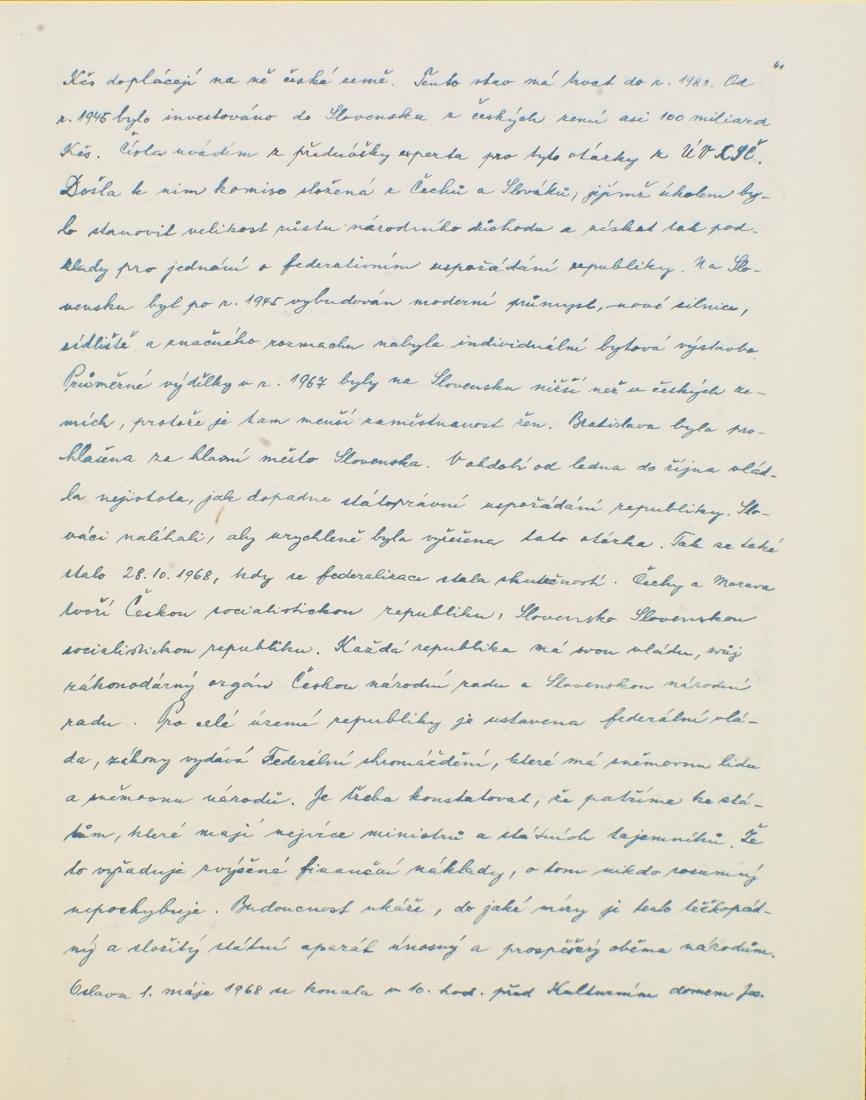 41
Kčs doplácejí na ně české země. Tento stav má trvat do r. 198. Od
r. 1945 bylo investováno do Slovenska z českých zemí asi 100 miliard
Kčs. Čísla uvádím z přednášky experta pro tyto otázky z ÚV KSČ.
Došla k nim komise složená z Čechů a Slováků, jejímž úkolem by-
lo stanovit velikost růstu národního důchodu a získat tak pod-
klady pro jednání o federativním uspořádání republiky. Na Slo-
vensku byl po r. 1945 vybudován moderní průmysl, nové silnice,
sídliště a značného rozmachu nabyla individuální bytová výstavba.
Průměrné výdělky v r. 1967 byly na Slovensku nižší než v českých ze-
mích, protože je tam menší zaměstnanost žen. Bratislava byla pro-
hlášena za hlavní město Slovenska. V období od ledna do října vlád-
la nejistota, jak dopadne státoprávní uspořádání republiky. Slo-
váci naléhali, aby urychleně byla vyřešena tato otázka. Tak se také
stalo 28.10.1968, kdy se federalizace stala skutečností. Čechy a Morava
tvoří Českou socialistickou republiku, Slovensko Slovenskou
socialistickou republiku. Každá republika má svou vládu, svůj
zákonodárný orgán Českou národní radu a Slovenskou národní
radu. Pro celé území republiky je ustavena federální vlá-
da, zákony vydává Federální shromáždění, které má sněmovnu lidu
a sněmovnu národů. Je třeba konstatovat, že patříme ke stá-
tům, které mají nejvíce ministrů a státních tajemníků. Že
to vyžaduje zvýšené finanční náklady, o tom nikdo rozumný
nepochybuje. Budoucnost ukáže, do jaké míry je tento těžkopád-
ný a složitý státní aparát únosný a prospěšný oběma národům.
Oslava 1. máje 1968 se konala v 10. hod. před Kulturním domem Ja.